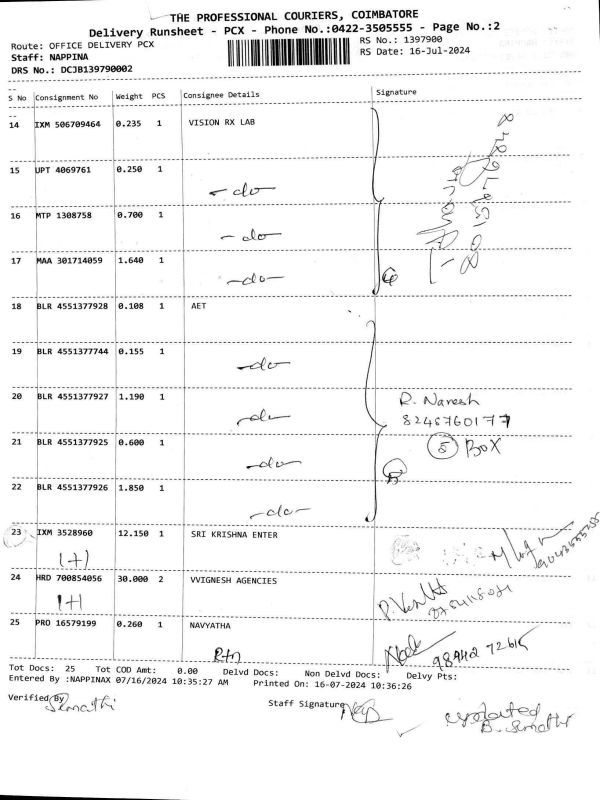 THE PROFESSIONAL COURIERS, COIMBATORE
Delivery Runsheet - PCX - Phone No.:0422-3505555 - Page No.:2
Route: OFFICE DELIVERY PCX
RS No.: 1397900
Staff: NAPPINA
RS Date: 16-Jul-2024
DRS No.: DCJB139790002
S No Consignment No Weight PCS Consignee Details Signature
14 IXM 506709464 0.235 1 VISION RX LAB
15 UPT 4069761 0.250 1
-do-
16 MTP 1308758 0.700 1
-do-
17 MAA 301714059 1.640 1
-do-
18 BLR 4551377928 0.108 1 AET
19 BLR 4551377744 0.155 1
-do-
20 BLR 4551377927 1.190 1
-do-
R. Naresh
8248760177
21 BLR 4551377925 0.600 1
-do-
5 BOX
22 BLR 4551377926 1.850 1
-do-
23 IXM 3528960 12.150 1 SRI KRISHNA ENTER
(+)
24 HRD 700854056 30.000 2 VVIGNESH AGENCIES
1+1
25 PRO 16579199 0.260 1 NAVYATHA
Tot Docs: 25 Tot COD Amt: 0.00 Delvd Docs: Non Delvd Docs: Delvy Pts:
Entered By :NAPPINAX 07/16/2024 10:35:27 AM Printed On: 16-07-2024 10:36:26
Verified By
Staff Signature
updated